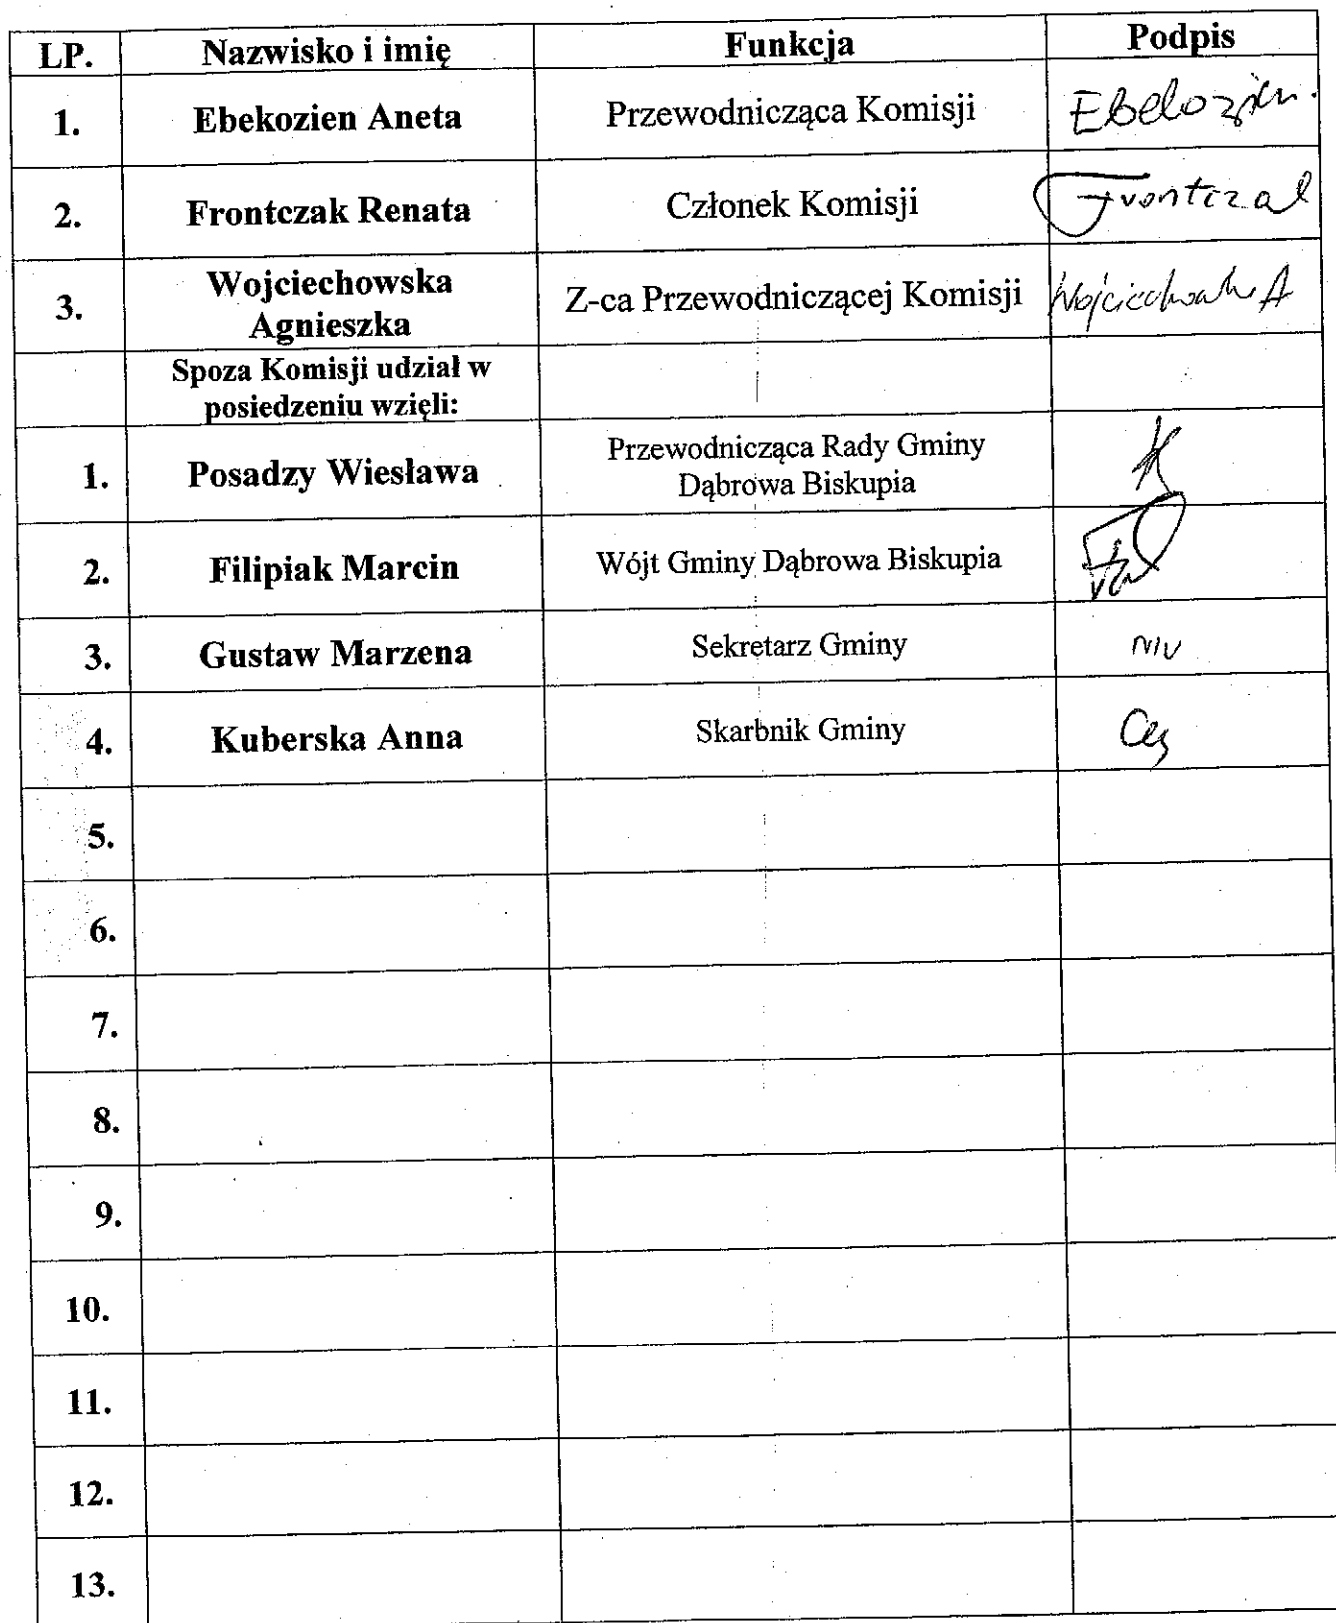 LP. Nazwisko i imię Funkcja Podpis
1. Ebekozien Aneta Przewodnicząca Komisji Ebekozien.
2. Frontczak Renata Członek Komisji Frontczak
3. Wojciechowska Agnieszka Z-ca Przewodniczącej Komisji Wojciechowska A
Spoza Komisji udział w
posiedzeniu wzięli:
1. Posadzy Wiesława Przewodnicząca Rady Gminy
Dąbrowa Biskupia
2. Filipiak Marcin Wójt Gminy Dąbrowa Biskupia
3. Gustaw Marzena Sekretarz Gminy
4. Kuberska Anna Skarbnik Gminy
5.
6.
7.
8.
9.
10.
11.
12.
13.